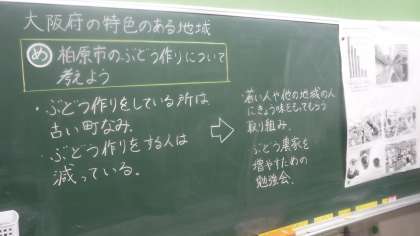 大阪府の特色のある地域
め 柏原市のぶどう作りについて
考えよう
・ぶどう作りをしている所は
古い町なみ.
・ぶどう作りをする人は
減っている.
⇨
・若い人や他の地域の人
にきょう味をもってもらう
取り組み.
・ぶどう農家を
増やすための
勉強会.